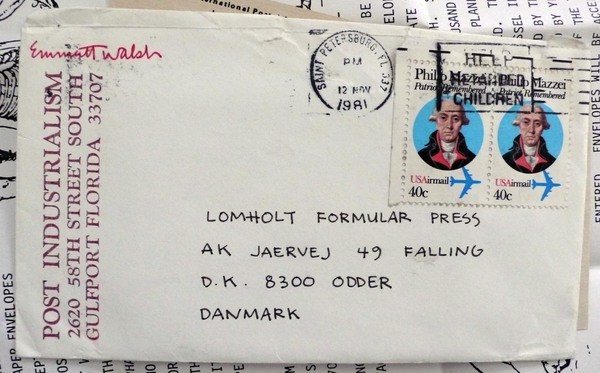 Emmett Walsh
POST INDUSTRIALISM
2620 58TH STREET SOUTH
GULFPORT FLORIDA 33707
SAINT PETERSBURG, FL 337
PM
12 NOV
1981
HELP
RETARDED
CHILDREN
Philip Mazzei
Patriot Remembered
USAirmail
40c
Philip Mazzei
Patriot Remembered
USAirmail
40c
LOMHOLT FORMULAR PRESS
AK JAERVEJ 49 FALLING
D.K. 8300 ODDER
DANMARK
International
ENVELOPES WILL BE
ENTERED
ENVELOPES